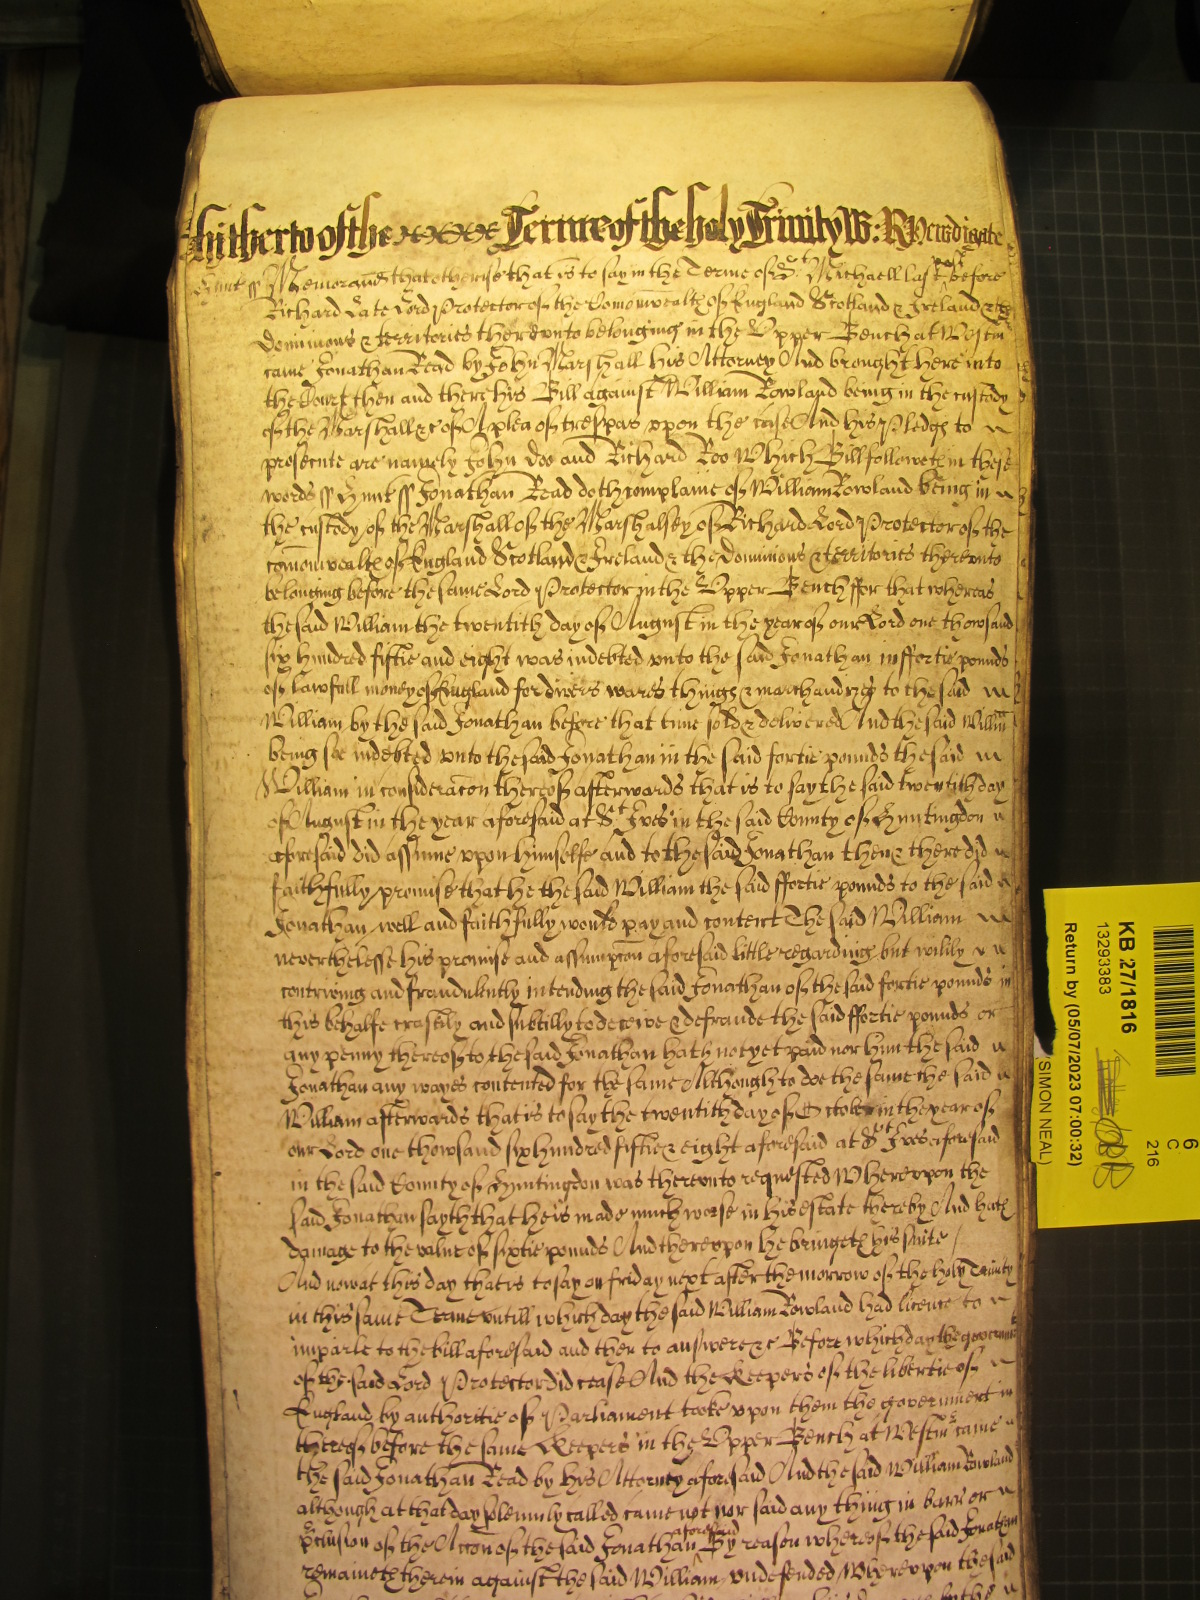 hitherto of the xxxx Terme of the holy Trinity W: R Newdigate
Hunt ss Memorand that otherwise that is to say in the Terme of St Michaell last past before
Richard Late Lord Protector of the Comonwealth of England Scotland & Ireland & the
Dominions & territories thereunto belonging in the Upper Bench at Westm
came Jonathan Read by John Marshall his Attorney And brought here into
the Court then and there his Bill against William Rowland being in the custody
of the Marshall &c of A plea of trespas upon the case And his Pledg to
prosecute are namely John Doo and Richard Roo Which Bill followeth in these
words ss Hunt ss Jonathan Read doth complaine of William Rowland being in
the custody of the Marshall of the Marshalsey of Richard Lord Protector of the
comonwealth of England Scotland & Ireland & the Dominions & territories thereunto
belonging before the same Lord Protector in the Upper Bench ffor that whereas
the said William the twentith day of August in the year of our Lord one thowsand
six hundred fiftie and eight was indebted unto the said Jonathan in ffortie pounds
of lawfull money of England for divers wares things & marchandizes to the said
William by the said Jonathan before that time sold & delivered And the said Willm
being soe indebted unto the said Jonathan in the said fortie pounds the said
William in consideracon thereof afterwards that is to say the said twentith day
of August in the year aforesaid at St Ives in the said County of Huntingdon
aforesaid did assume upon himselfe and to the said Jonathan then & there did
faithfully promise that he the said William the said ffortie pounds to the said
Jonathan well and faithfully would pay and content The said William
neverthelesse his promise and assumpcon aforesaid little regarding but wilily
contriving and fraudulently intending the said Jonathan of the said fortie pounds in
this behalfe craftily and subtilly to deceive & defraude the said ffortie pounds or
any penny thereof to the said Jonathan hath not yet paid nor him the said
Jonathan any wayes contented for the same Although to doe the same the said
William afterwards that is to say the twentith day of October in the year of
our Lord one thowsand six hundred fiftie & eight aforesaid at St Ives aforesaid
in the said County of Huntingdon was thereunto requested Whereupon the
said Jonathan sayth that he is made much worse in his estate thereby And hath
damage to the value of sixtie pounds And thereupon he bringeth his suite /
And now at this day that is to say on friday next after the morrow of the holy Trinity
in this same Terme untill which day the said William Rowland had licence to
imparle to the bill aforesaid and then to answere &c Before which day the government
of the said Lord Protector did cease And the Keepers of the libertie of
England by authoritie of Parliament tooke upon them the government
thereof before the same Keepers in the Upper Bench at Westm came
the said Jonathan Read by his Attorney aforesaid And the said William Rowland
although at that day solemnly called came not nor said any thing in barr or
pclusion of the Accon of the said Jonathan aforesaid By reason whereof the said Jonathan
remaineth therein against the said William undefended Whereupon the said
KB 27/1816
13293383
Return by (05/07/2023 07:00:32)
(SIMON NEAL)
6
C
216